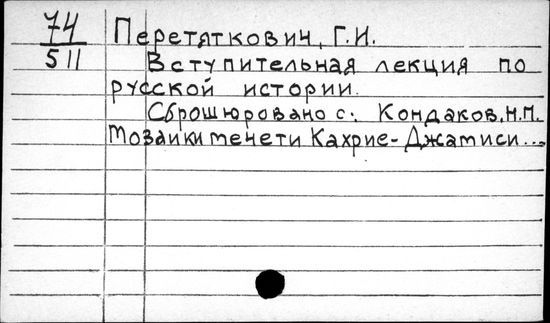 74
511
Перетяткович, Г.И.
Вступительная лекция по
русской истории.
Сброшюровано с: Кондаков, Н.П.
Мозаики мечети Кахрие-Джамиси...